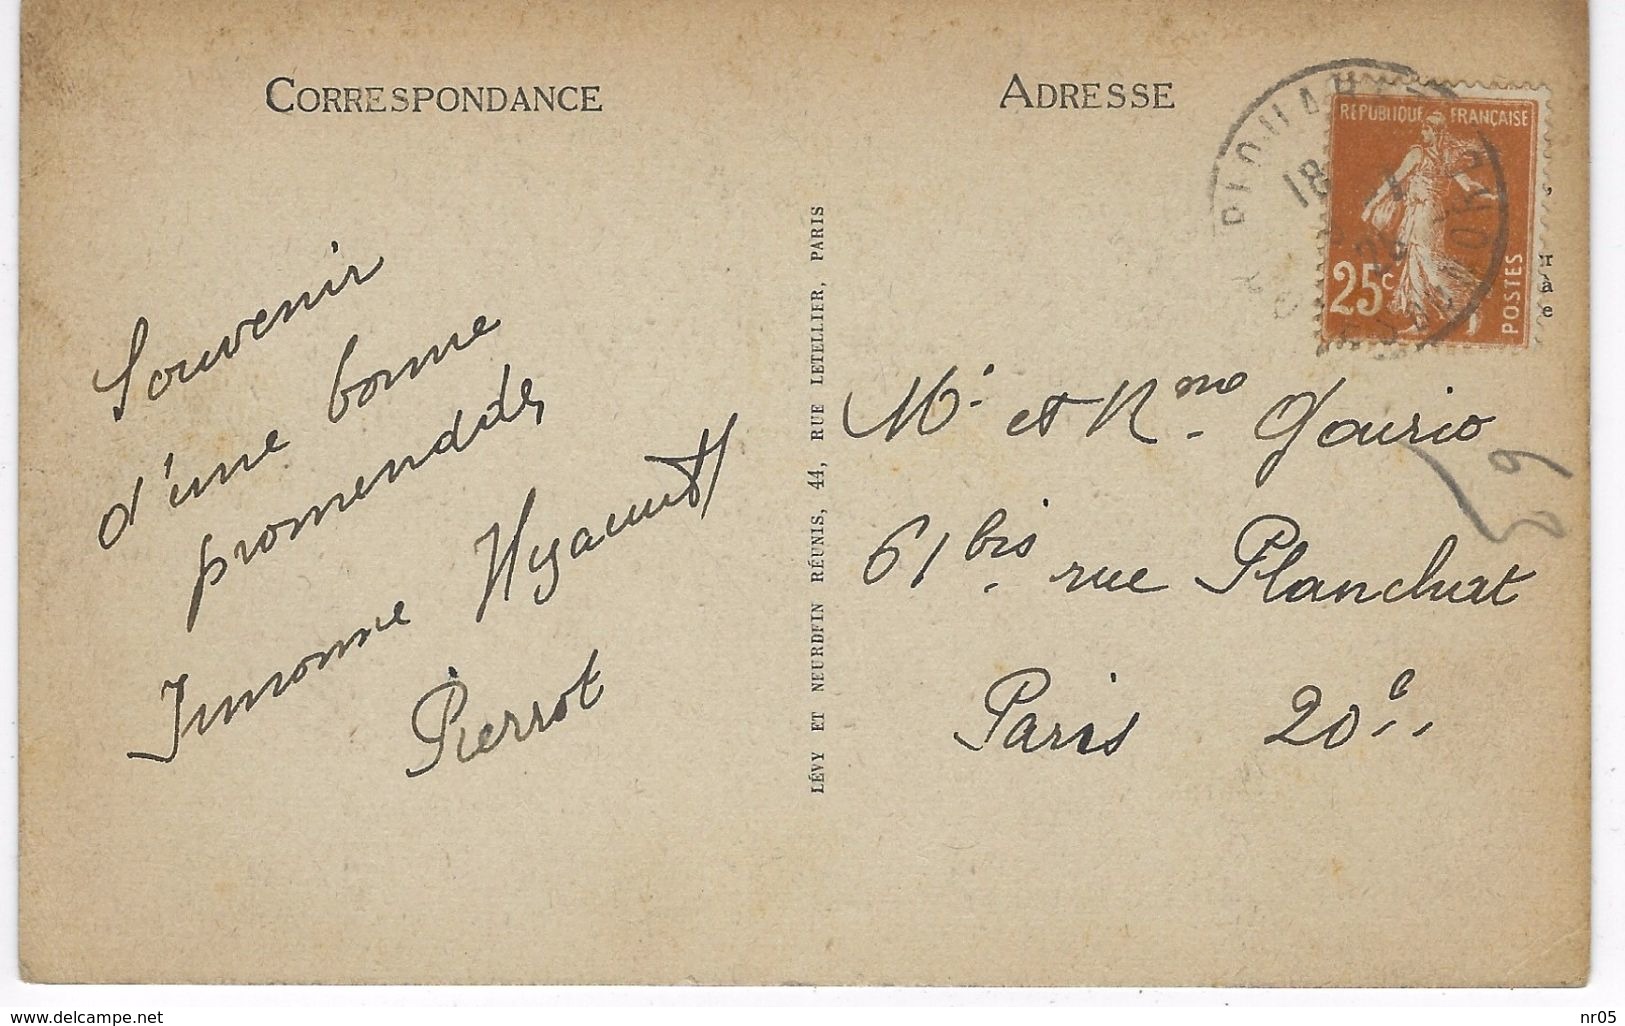 CORRESPONDANCE
ADRESSE
REPUBLIQUE FRANÇAISE
25c
POSTES
18
Souvenir
d'une bonne
promenade
Pierrot
LÉVY ET NEURDFIN RÉUNIS, 44, RUE LETELLIER, PARIS
Mr et Mme Gourio
61 bis rue Planchat
Paris 20e
www.delcampe.net
nr05